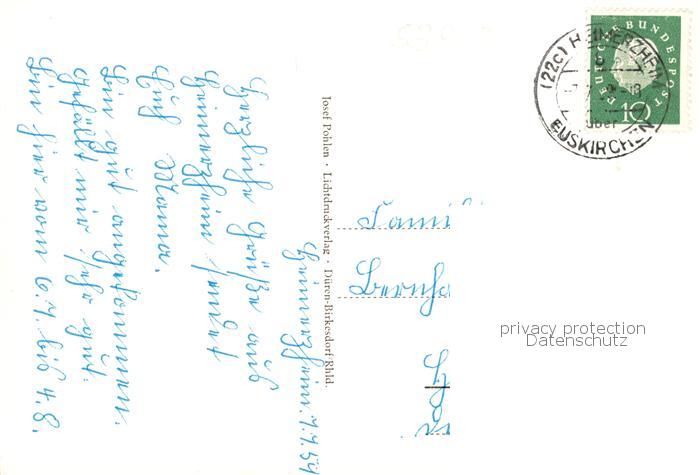 Heimerzheim. 7.7.59
Herzliche Grüße aus
Heimerzheim sendet
Euch Mama.
Bin gut angekommen.
Gefällt mir sehr gut.
Bin hier vom 6.7. bis 4.8.
Josef Pohlen · Lichtdruckverlag · Düren-Birkesdorf Rhld.
Fami
Bernha
privacy protection
Datenschutz
DEUTSCHE BUNDESPOST
10
(22c) HEIMERZHEIM
b
-18
über
EUSKIRCHEN